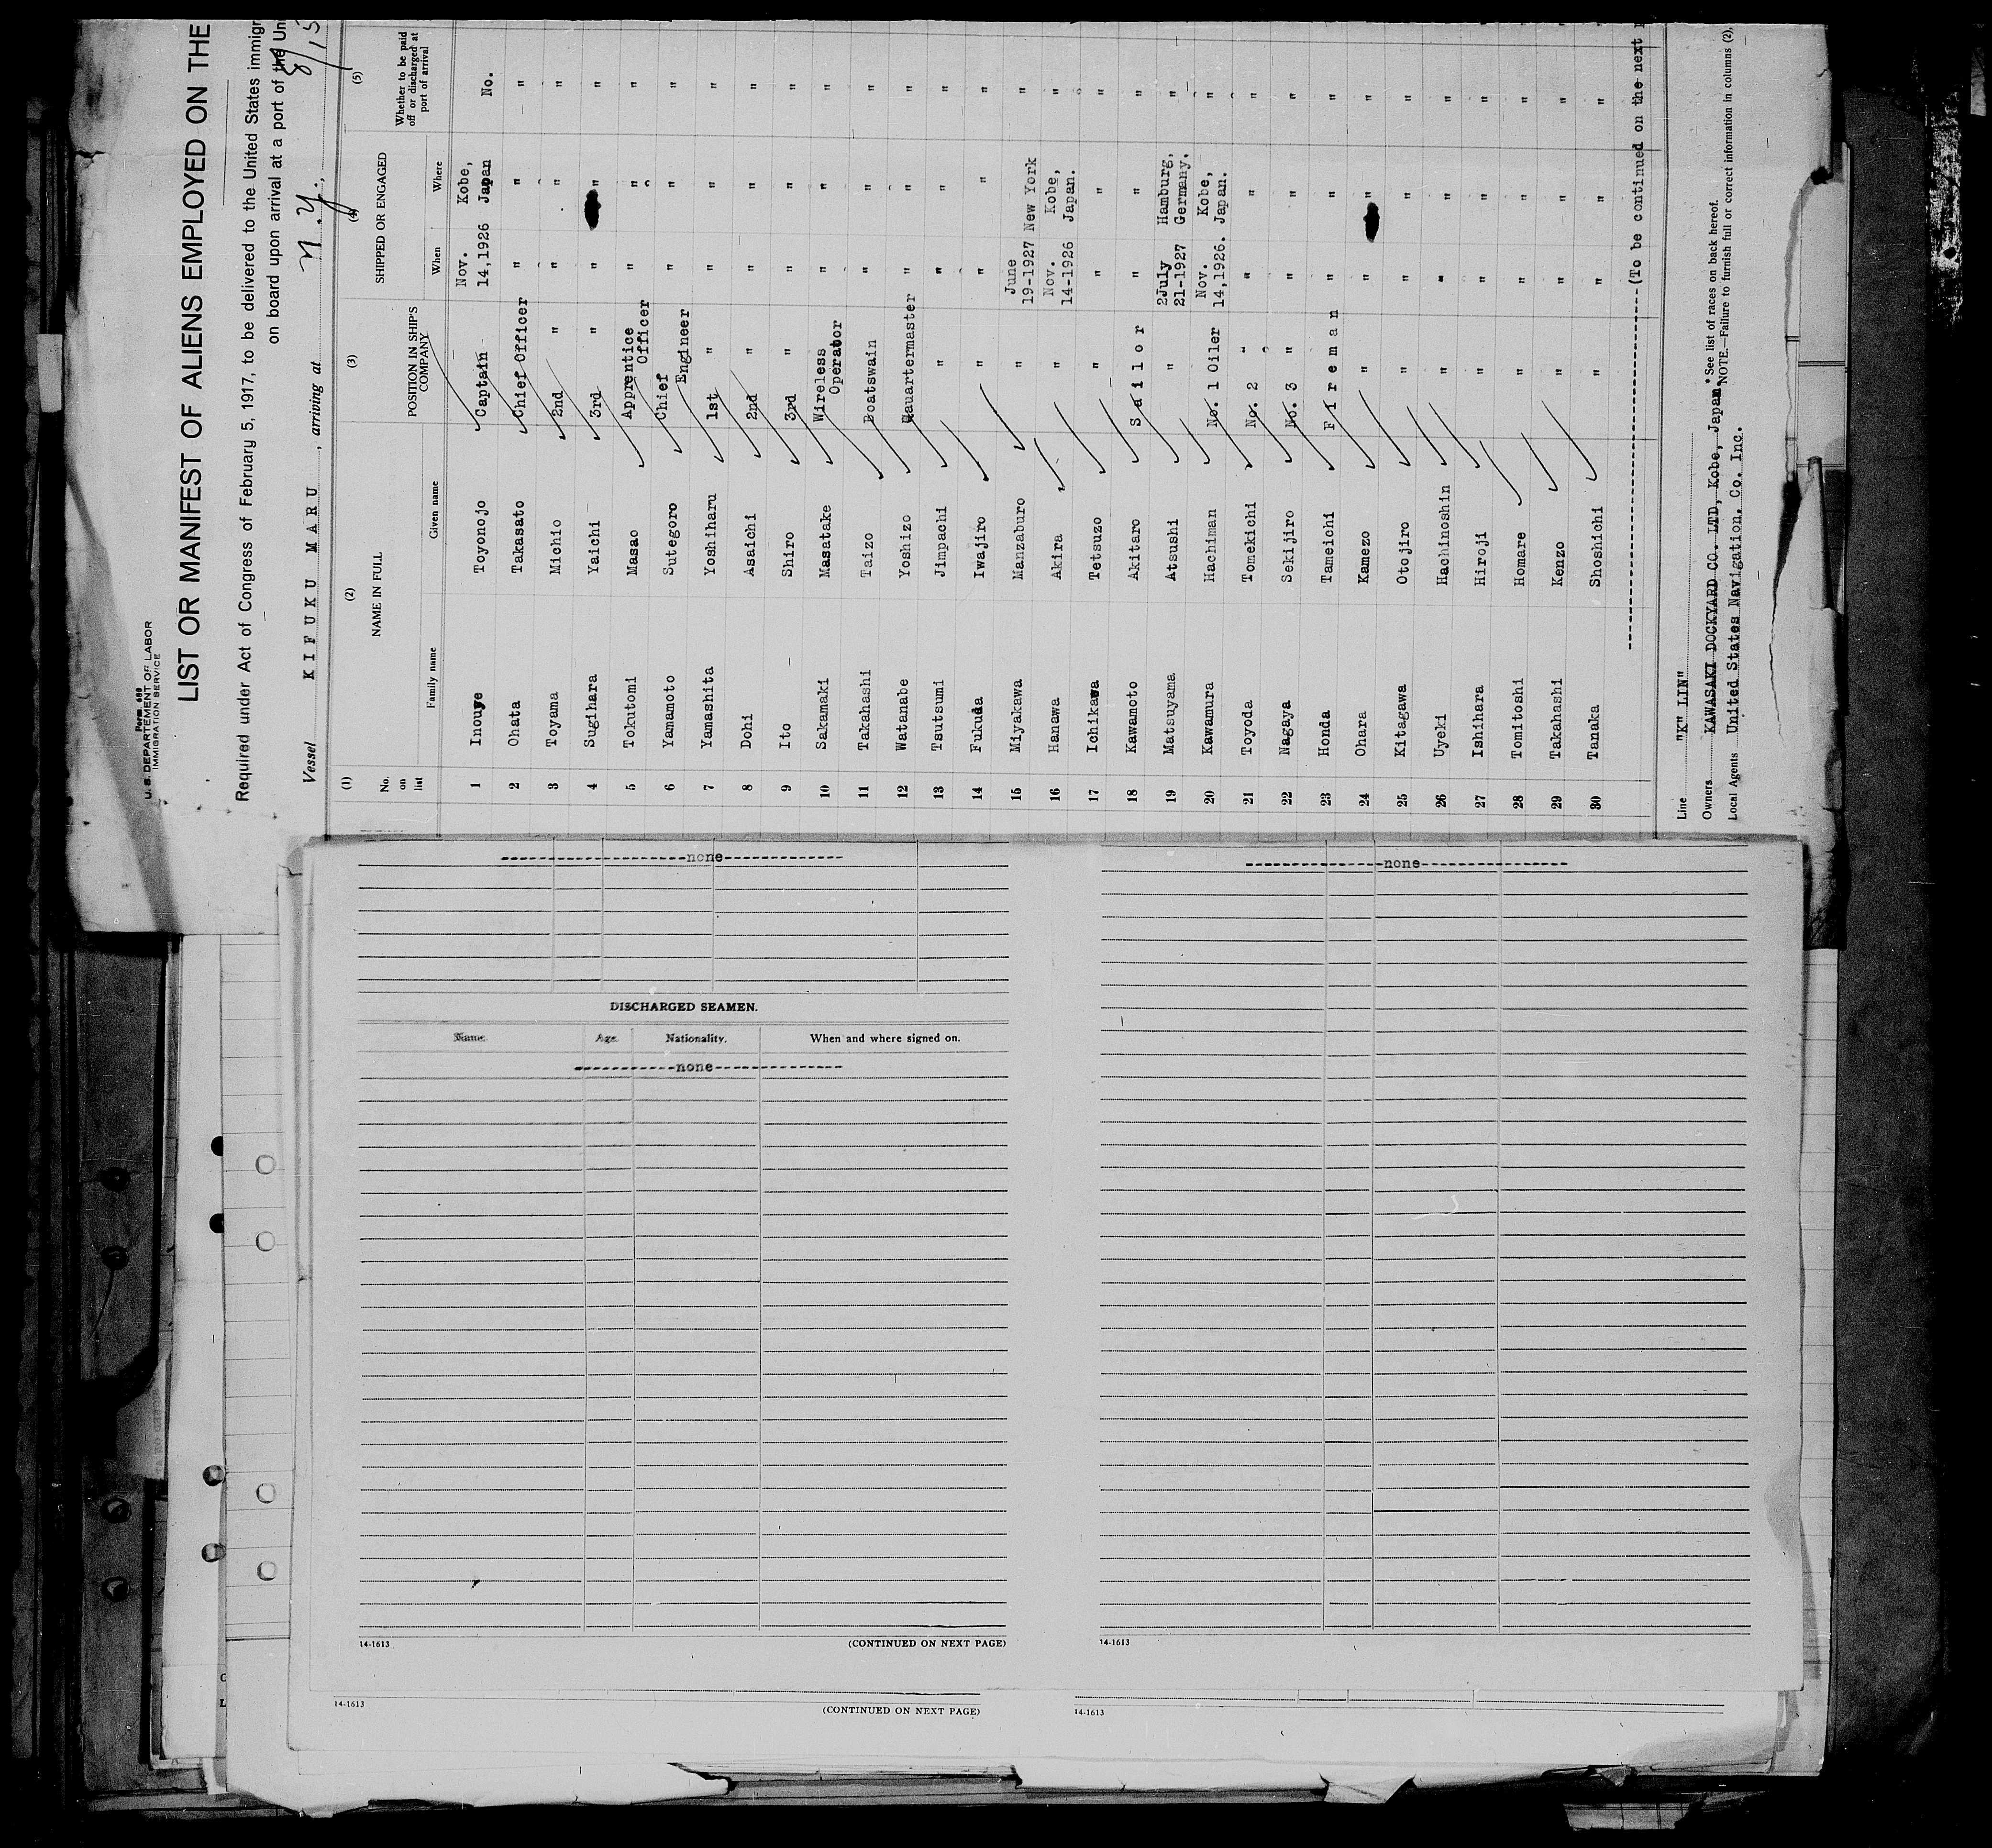 Form 680
U. S. DEPARTMENT OF LABOR
IMMIGRATION SERVICE
LIST OR MANIFEST OF ALIENS EMPLOYED ON THE
Required under Act of Congress of February 5, 1917, to be delivered to the United States immigr
on board upon arrival at a port of the Un
Vessel KIFUKU MARU, arriving at N.Y., 8/15
(1) (2) (3) (4) (5)
No. on list NAME IN FULL POSITION IN SHIP'S COMPANY SHIPPED OR ENGAGED Whether to be paid off or discharged at port of arrival
Family name Given name When Where
1 Inouye Toyonojo Captain Nov. 14,1926 Kobe, Japan No.
2 Ohata Takasato Chief Officer " " "
3 Toyama Michio 2nd " " " "
4 Sugihara Yaichi 3rd " " " "
5 Tokutomi Masao Apprentice Officer " " "
6 Yamamoto Sutegoro Chief Engineer " " "
7 Yamashita Yoshiharu 1st " " " "
8 Dohi Asaichi 2nd " " " "
9 Ito Shiro 3rd " " " "
10 Sakamaki Masatake Wireless Operator " " "
11 Takahashi Taizo Boatswain " " "
12 Watanabe Yoshizo Quartermaster " " "
13 Tsutsumi Jimpachi " " " "
14 Fukuda Iwajiro " " " "
15 Miyakawa Manzaburo " June 19-1927 New York "
16 Hanawa Akira " Nov. 14-1926 Kobe, Japan. "
17 Ichikawa Tetsuzo " " " "
18 Kawamoto Akitaro Sailor " " "
19 Matsuyama Atsushi " 2July 21-1927 Hamburg, Germany. "
20 Kawamura Hachiman No. 1 Oiler Nov. 14,1926. Kobe, Japan. "
21 Toyoda Tomekichi No. 2 " " " "
22 Nagaya Sekijiro No. 3 " " " "
23 Honda Tameichi Fireman " " "
24 Ohara Kamezo " " " "
25 Kitagawa Otojiro " " " "
26 Uyeki Hachinoshin " " " "
27 Ishihara Hiroji " " " "
28 Tomitoshi Homare " " " "
29 Takahashi Kenzo " " " "
30 Tanaka Shoshichi " " " "
(To be continued on the next
Line "K" LIN"
Owners KAWASAKI DOCKYARD CO. LTD, Kobe, Japan.
Local Agents United States Navigation. Co. Inc.
* See list of races on back hereof.
NOTE.—Failure to furnish full or correct information in columns (2),
none
DISCHARGED SEAMEN.
Name. Age. Nationality. When and where signed on.
none
14-1613 (CONTINUED ON NEXT PAGE)
none
14-1613
14-1613 (CONTINUED ON NEXT PAGE)
14-1613